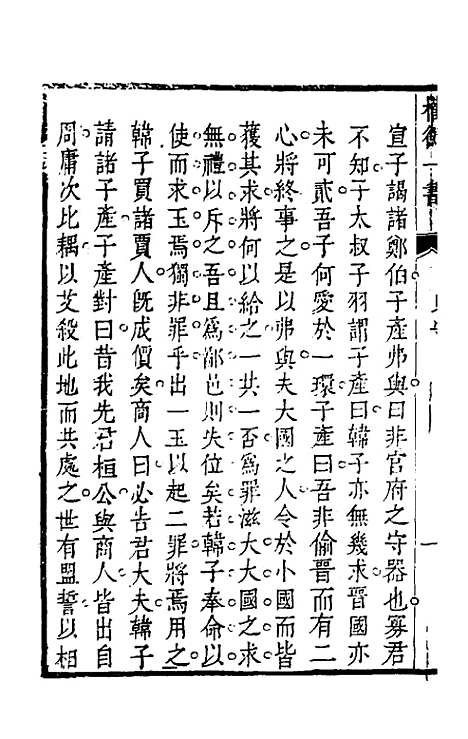 宣子謁諸鄭伯子產弗與曰非官府之守器也寡君
不知子太叔子羽謂子產曰韓子亦無幾求晉國亦
未可貳吾子何愛於一環子產曰吾非偷晉而有二
心將終事之是以弗與夫大國之人令於小國而皆
獲其求將何以給之一共一否爲罪滋大大國之求
無禮以斥之吾且爲鄙邑則失位矣若韓子奉命以
使而求玉焉獨非罪乎出一玉以起二罪將焉用之
韓子買諸賈人旣成價矣商人曰必告君大夫韓子
請諸子產子產對曰昔我先君桓公與商人皆出自
周庸次比耦以艾殺此地而共處之世有盟誓以相